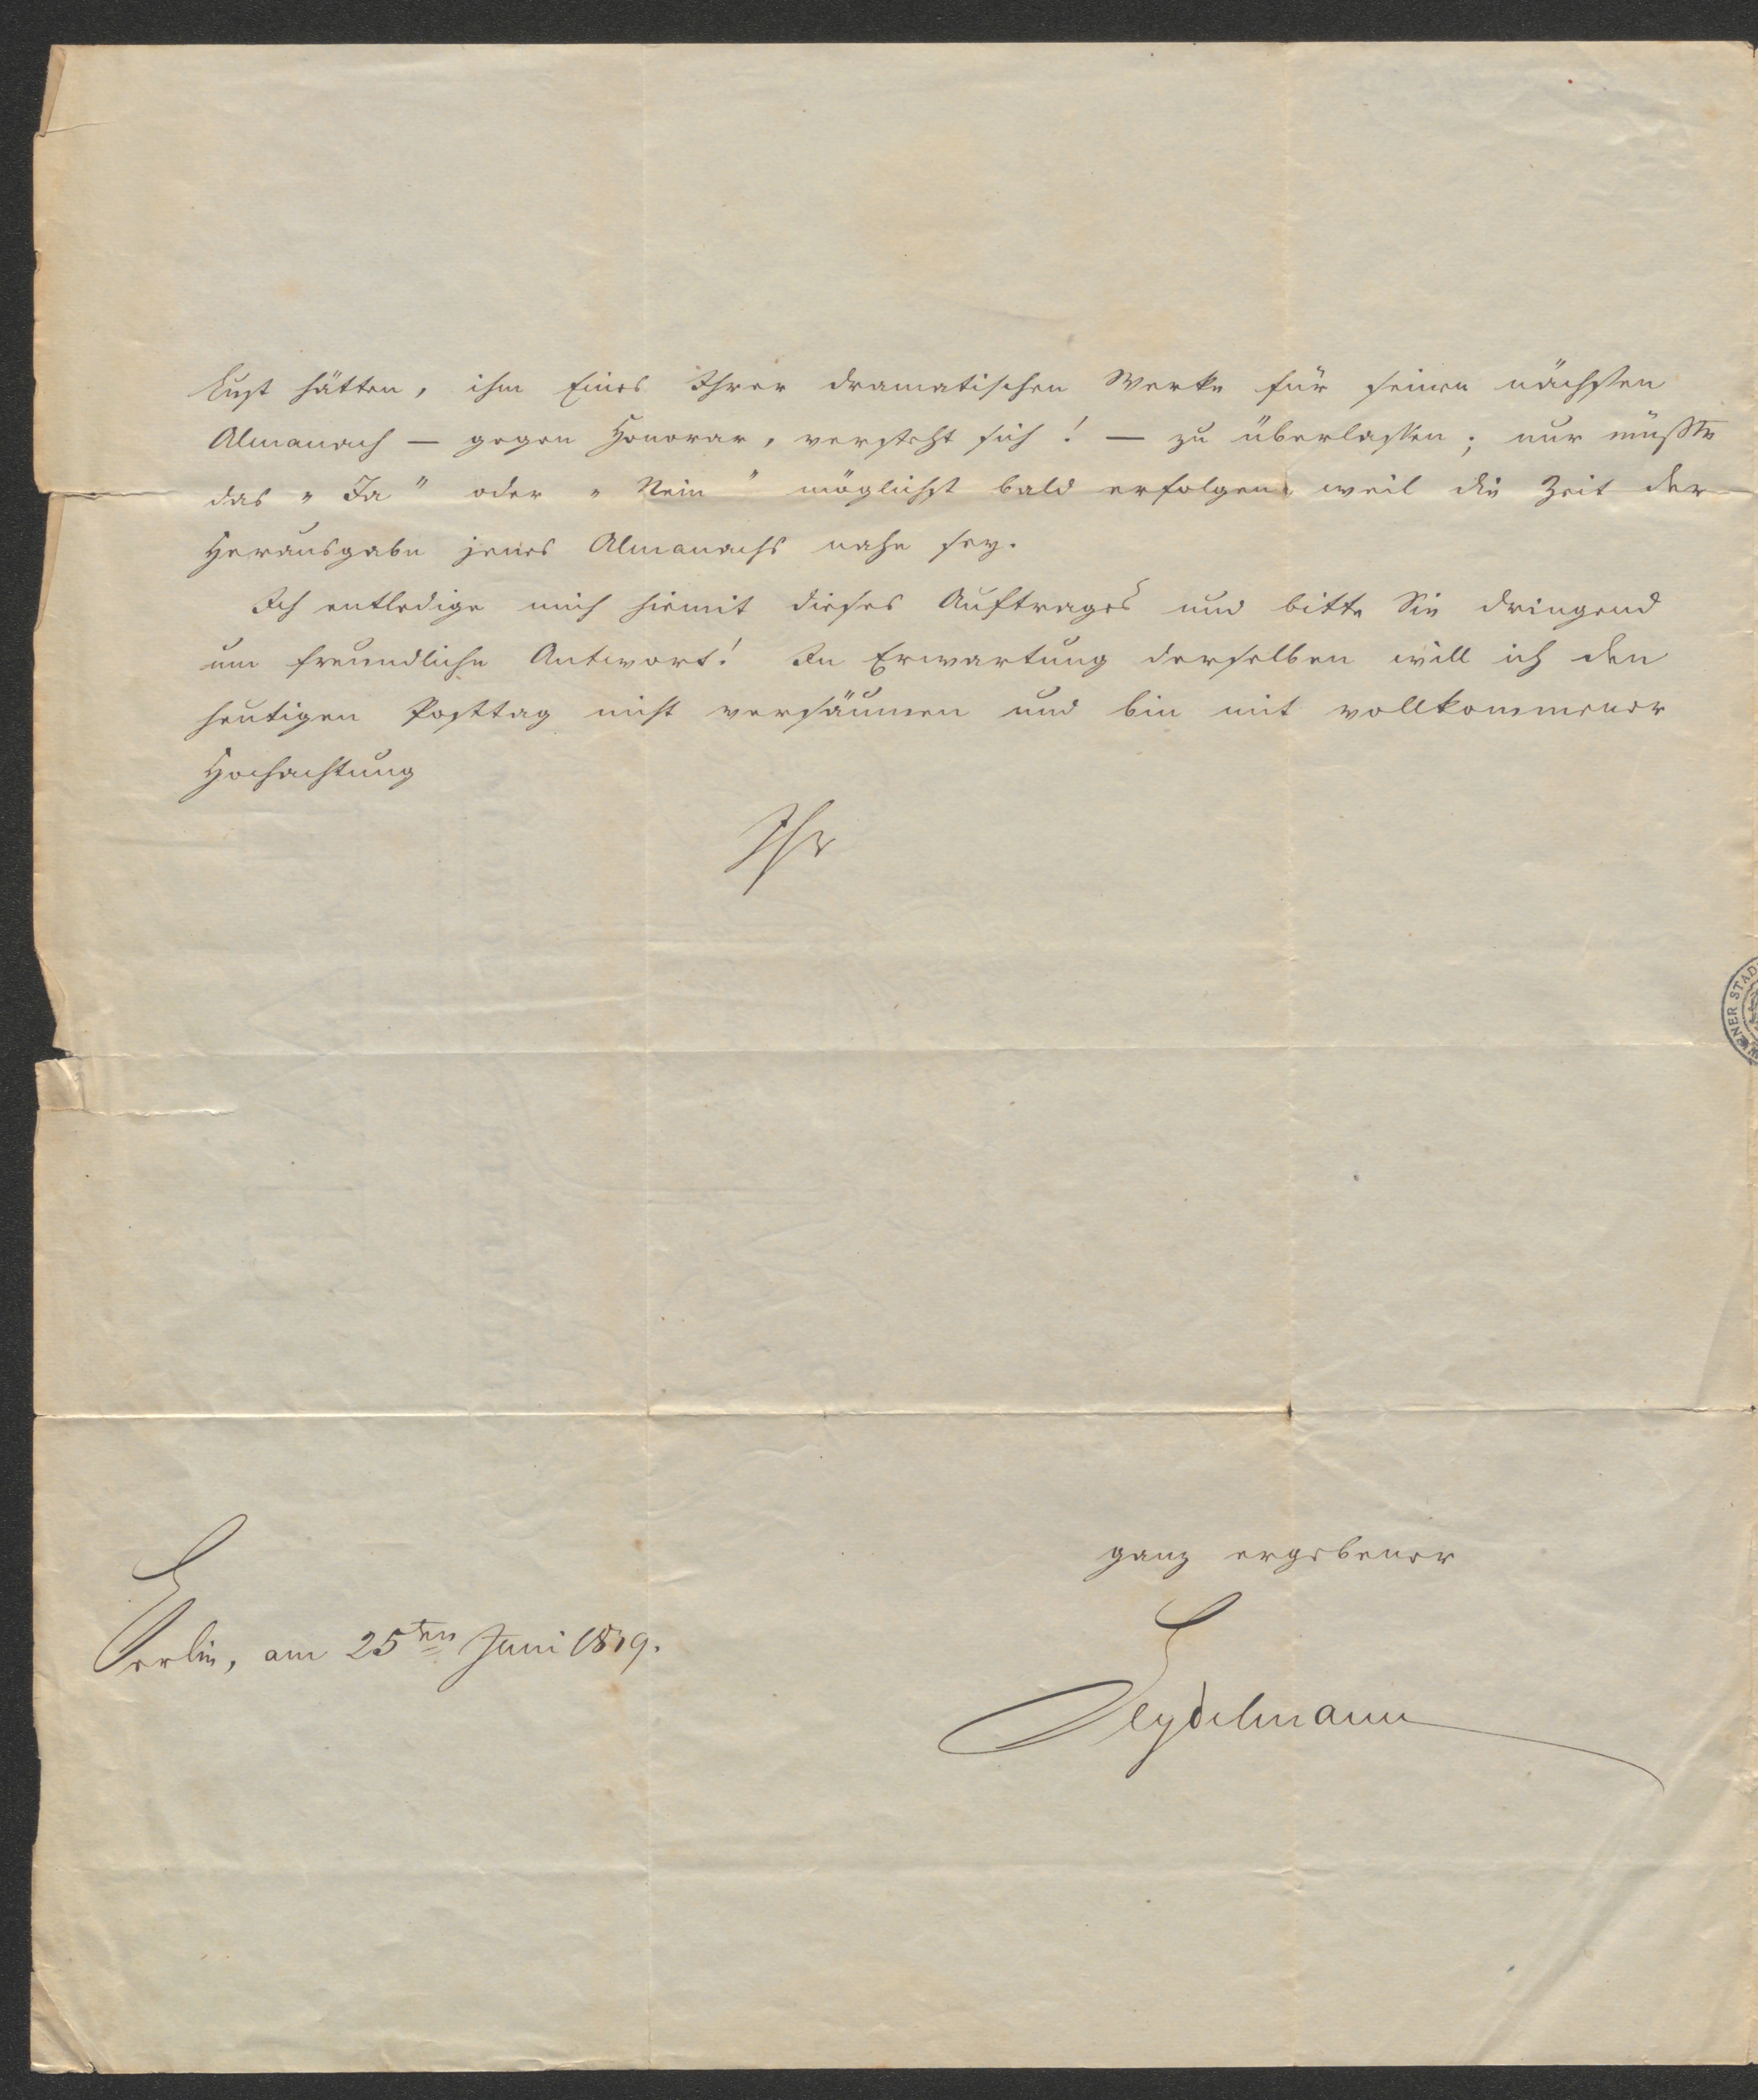 Lust hätten, ihm Eines Ihrer dramatischen Werke für seinen nächsten
Almanach — gegen Honorar, versteht sich! — zu überlassen; nur müßte
das „Ja" oder „Nein" möglichst bald erfolgen, weil die Zeit der
Herausgabe jenes Almanachs nahe sey.
Ich entledige mich hiemit dieses Auftrages und bitte Sie dringend
um freundliche Antwort! In Erwartung derselben will ich den
heutigen Posttag nicht versäumen und bin mit vollkommener
Hochachtung
Ihr
WIENER STAD
ganz ergebener
Berlin, am 25ten Juni
Seydelmann